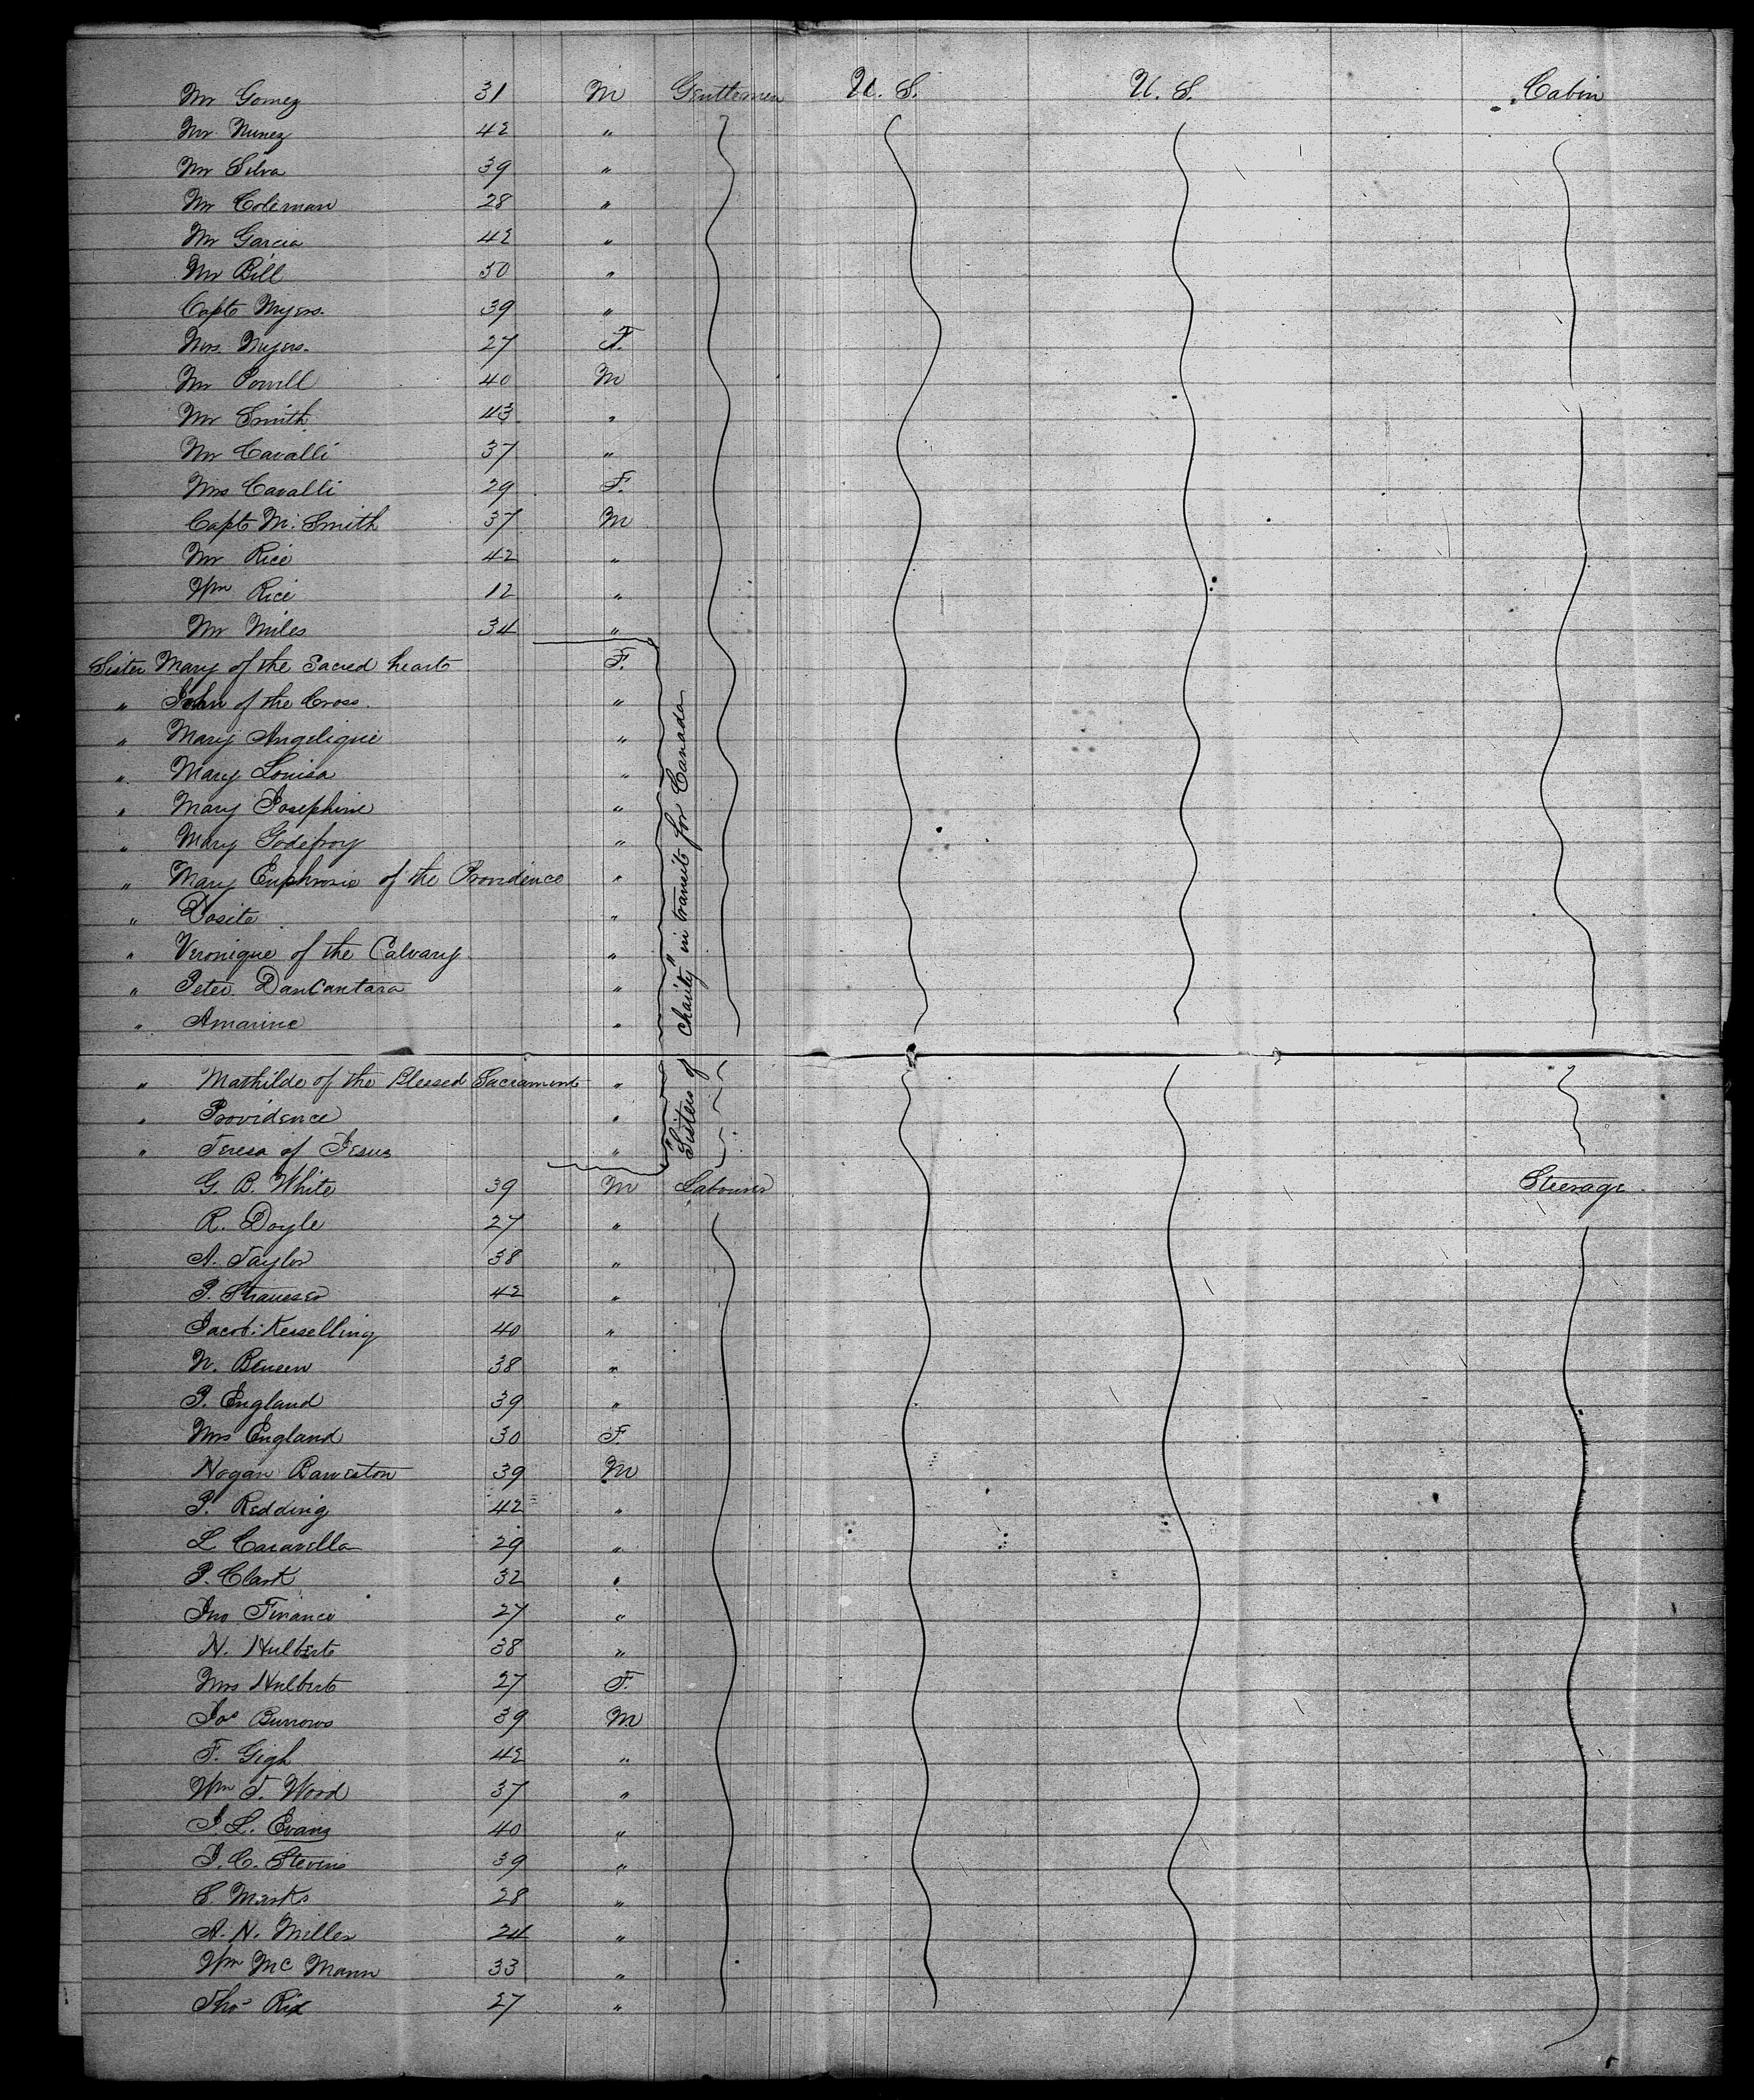 Mr Gomez 31 M Gentlemen U. S. U. S. Cabin
Mr Nunez 42 "
Mr Silva 39 "
Mr Coleman 28 "
Mr Garcia 42 "
Mr Bill 50 "
Capt Myers. 39 "
Mrs. Myers. 27 F.
Mr Powell 40 M
Mr Smith 43 "
Mr Cavalli 37 "
Mrs Cavalli 29 F.
Capt M. Smith 37 M
Mr Rice 42 "
Wm Rice 12 "
Mr Miles 34 "
Sister Mary of the Sacred heart F.
" John of the Cross. "
" Mary Angelique "
" Mary Louisa "
" Mary Josephine "
" Mary Godefroy "
" Mary Euphrosie of the Providence "
" Dosite "
" Veronique of the Calvary "
" Peter DanCantara "
" Amarine "
"Sisters of charity" in transit for Canada
" Mathilde of the Blessed Sacrament "
" Providence "
" Teresa of Jesus "
G. B. White 39 M Labourer Steerage
R. Doyle 27 "
A. Taylor 38 "
P. 42 "
Jacob Kesselling 40 "
38 "
P. England 39 "
Mrs England 30 F.
Hogan 39 M
P. Redding 42 "
L Caravella 29 "
P. Clark 32 "
Jno Finance 27 "
H. Hulbert 38 "
Mrs Hulbert 27 F.
Jos Burrows 39 M
F. Gigh 42 "
Wm T. Wood 37 "
J. L. Evans 40 "
J. C. Stevens 39 "
S. Marks 28 "
A. N. Miller 24 "
Wm Mc Mann 33 "
Thos Rix 27 "